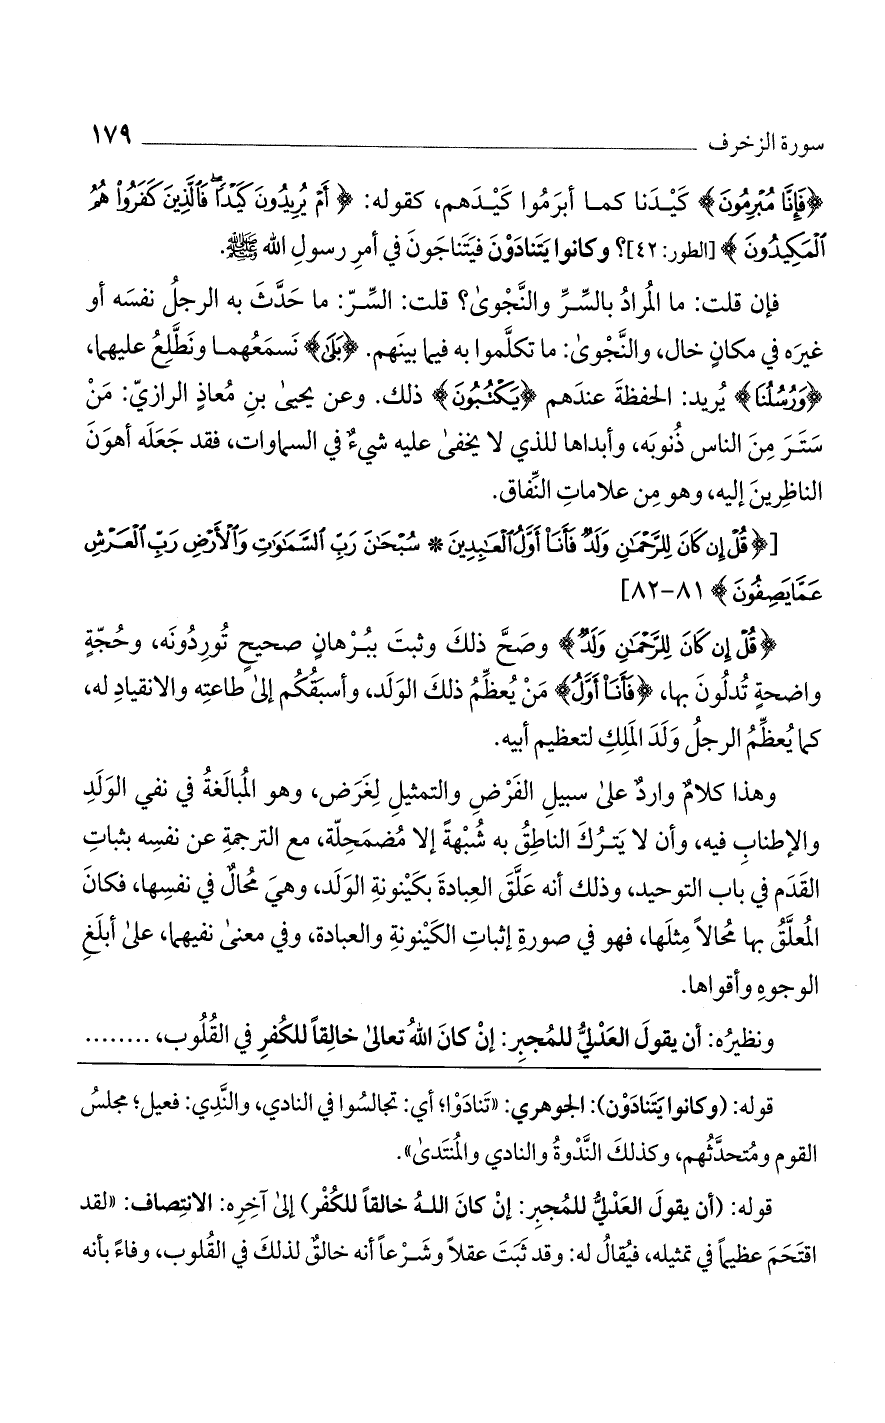 سورة الزخرف ١٧٩
﴿فَإِنَّا مُبْرِمُونَ﴾ كَيْدَنا كما أبرَمُوا كَيْدَهم، كقوله: ﴿أَمْ يُرِيدُونَ كَيْدًا ۖ فَٱلَّذِينَ كَفَرُوا۟ هُمُ
ٱلْمَكِيدُونَ﴾ [الطور: ٤٢]؟ وكانوا يَتَنادَوْنَ فيَتَناجَونَ في أمرِ رسولِ الله ﷺ.
فإن قلت: ما المُرادُ بالسِّرِّ والنَّجْوىٰ؟ قلت: السِّرّ: ما حَدَّثَ به الرجلُ نفسَه أو
غيرَه في مكانٍ خال، والنَّجْوىٰ: ما تكلَّموا به فيما بينَهم. ﴿بَلَىٰ﴾ نَسمَعُهما ونَطَّلِعُ عليهما،
﴿وَرُسُلُنَا﴾ يُريد: الحفظةَ عندَهم ﴿يَكْتُبُونَ﴾ ذلك. وعن يحيىٰ بنِ مُعاذٍ الرازيّ: مَنْ
سَتَرَ مِنَ الناس ذُنوبَه، وأبداها للذي لا يخفىٰ عليه شيءٌ في السماوات، فقد جَعَلَه أهوَنَ
الناظِرينَ إليه، وهو مِن علاماتِ النِّفاق.
[﴿قُلْ إِن كَانَ لِلرَّحْمَٰنِ وَلَدٌ فَأَنَا۠ أَوَّلُ ٱلْعَٰبِدِينَ * سُبْحَٰنَ رَبِّ ٱلسَّمَٰوَٰتِ وَٱلْأَرْضِ رَبِّ ٱلْعَرْشِ
عَمَّا يَصِفُونَ﴾ ٨١-٨٢]
﴿قُلْ إِن كَانَ لِلرَّحْمَٰنِ وَلَدٌ﴾ وصَحَّ ذلكَ وثبتَ ببُرْهانٍ صحيحٍ تُورِدُونَه، وحُجّةٍ
واضحةٍ تُدلُونَ بها، ﴿فَأَنَا۠ أَوَّلُ﴾ مَنْ يُعظِّمُ ذلكَ الوَلَد، وأسبَقُكُم إلىٰ طاعتِه والانقيادِ له،
كما يُعظِّمُ الرجلُ وَلَدَ المَلِكِ لتعظيم أبيه.
وهذا كلامٌ واردٌ علىٰ سبيلِ الفَرْضِ والتمثيلِ لِغَرَض، وهو المُبالَغةُ في نفي الوَلَدِ
والإطنابِ فيه، وأن لا يَترُكَ الناطِقُ به شُبْهةً إلا مُضمَحِلّة، مع الترجمةِ عن نفسِه بثباتِ
القَدَم في باب التوحيد، وذلك أنه عَلَّقَ العِبادةَ بكَيْنونةِ الوَلَد، وهيَ مُحالٌ في نفسِها، فكانَ
المُعلَّقُ بها مُحالاً مِثلَها، فهو في صورةِ إثباتِ الكَيْنونةِ والعبادة، وفي معنىٰ نفيِهما، علىٰ أبلَغِ
الوجوهِ وأقواها.
ونظيرُه: أن يقولَ العَدْليُّ للمُجبِر: إنْ كانَ اللهُ تعالىٰ خالِقاً للكُفرِ في القُلُوب، ........
قوله: (وكانوا يَتَنادَوْن): الجوهري: «تَنادَوْا؛ أي: تجالسُوا في النادي، والنَّدِي: فعيل؛ مجلسُ
القوم ومُتحدَّثُهم، وكذلكَ النَّدْوةُ والنادي والمُنتَدىٰ».
قوله: (أن يقولَ العَدْليُّ للمُجبِر: إنْ كانَ اللـهُ خالقاً للكُفْر) إلىٰ آخِره: الانتِصاف: «لقد
اقتَحَمَ عظيماً في تمثيله، فيُقالُ له: وقد ثبَتَ عقلاً وشَرْعاً أنه خالقٌ لذلكَ في القُلوب، وفاءً بأنه